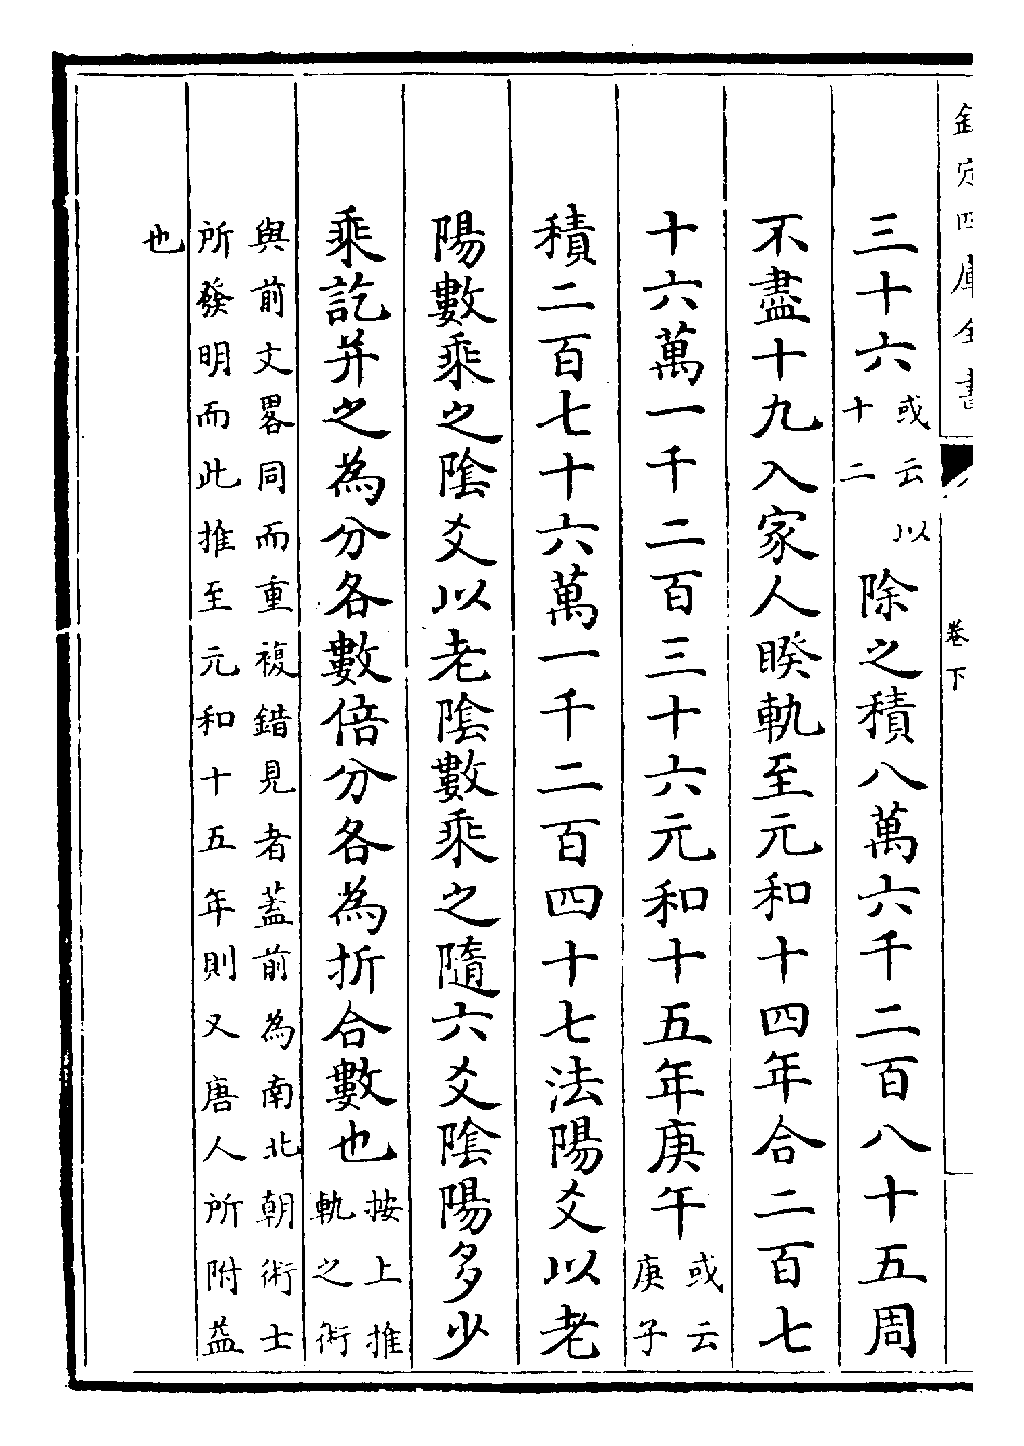 欽定四庫全書 卷下
三十六或云以十二除之積八萬六千二百八十五周
不盡十九入家人睽軌至元和十四年合二百七
十六萬一千二百三十六元和十五年庚午或云庚子
積二百七十六萬一千二百四十七法陽爻以老
陽數乘之陰爻以老陰數乘之隨六爻陰陽多少
乘訖并之為分各數倍分各為折合數也按上推軌之術
與前文畧同而重複錯見者蓋前為南北朝術士
所發明而此推至元和十五年則又唐人所附益
也